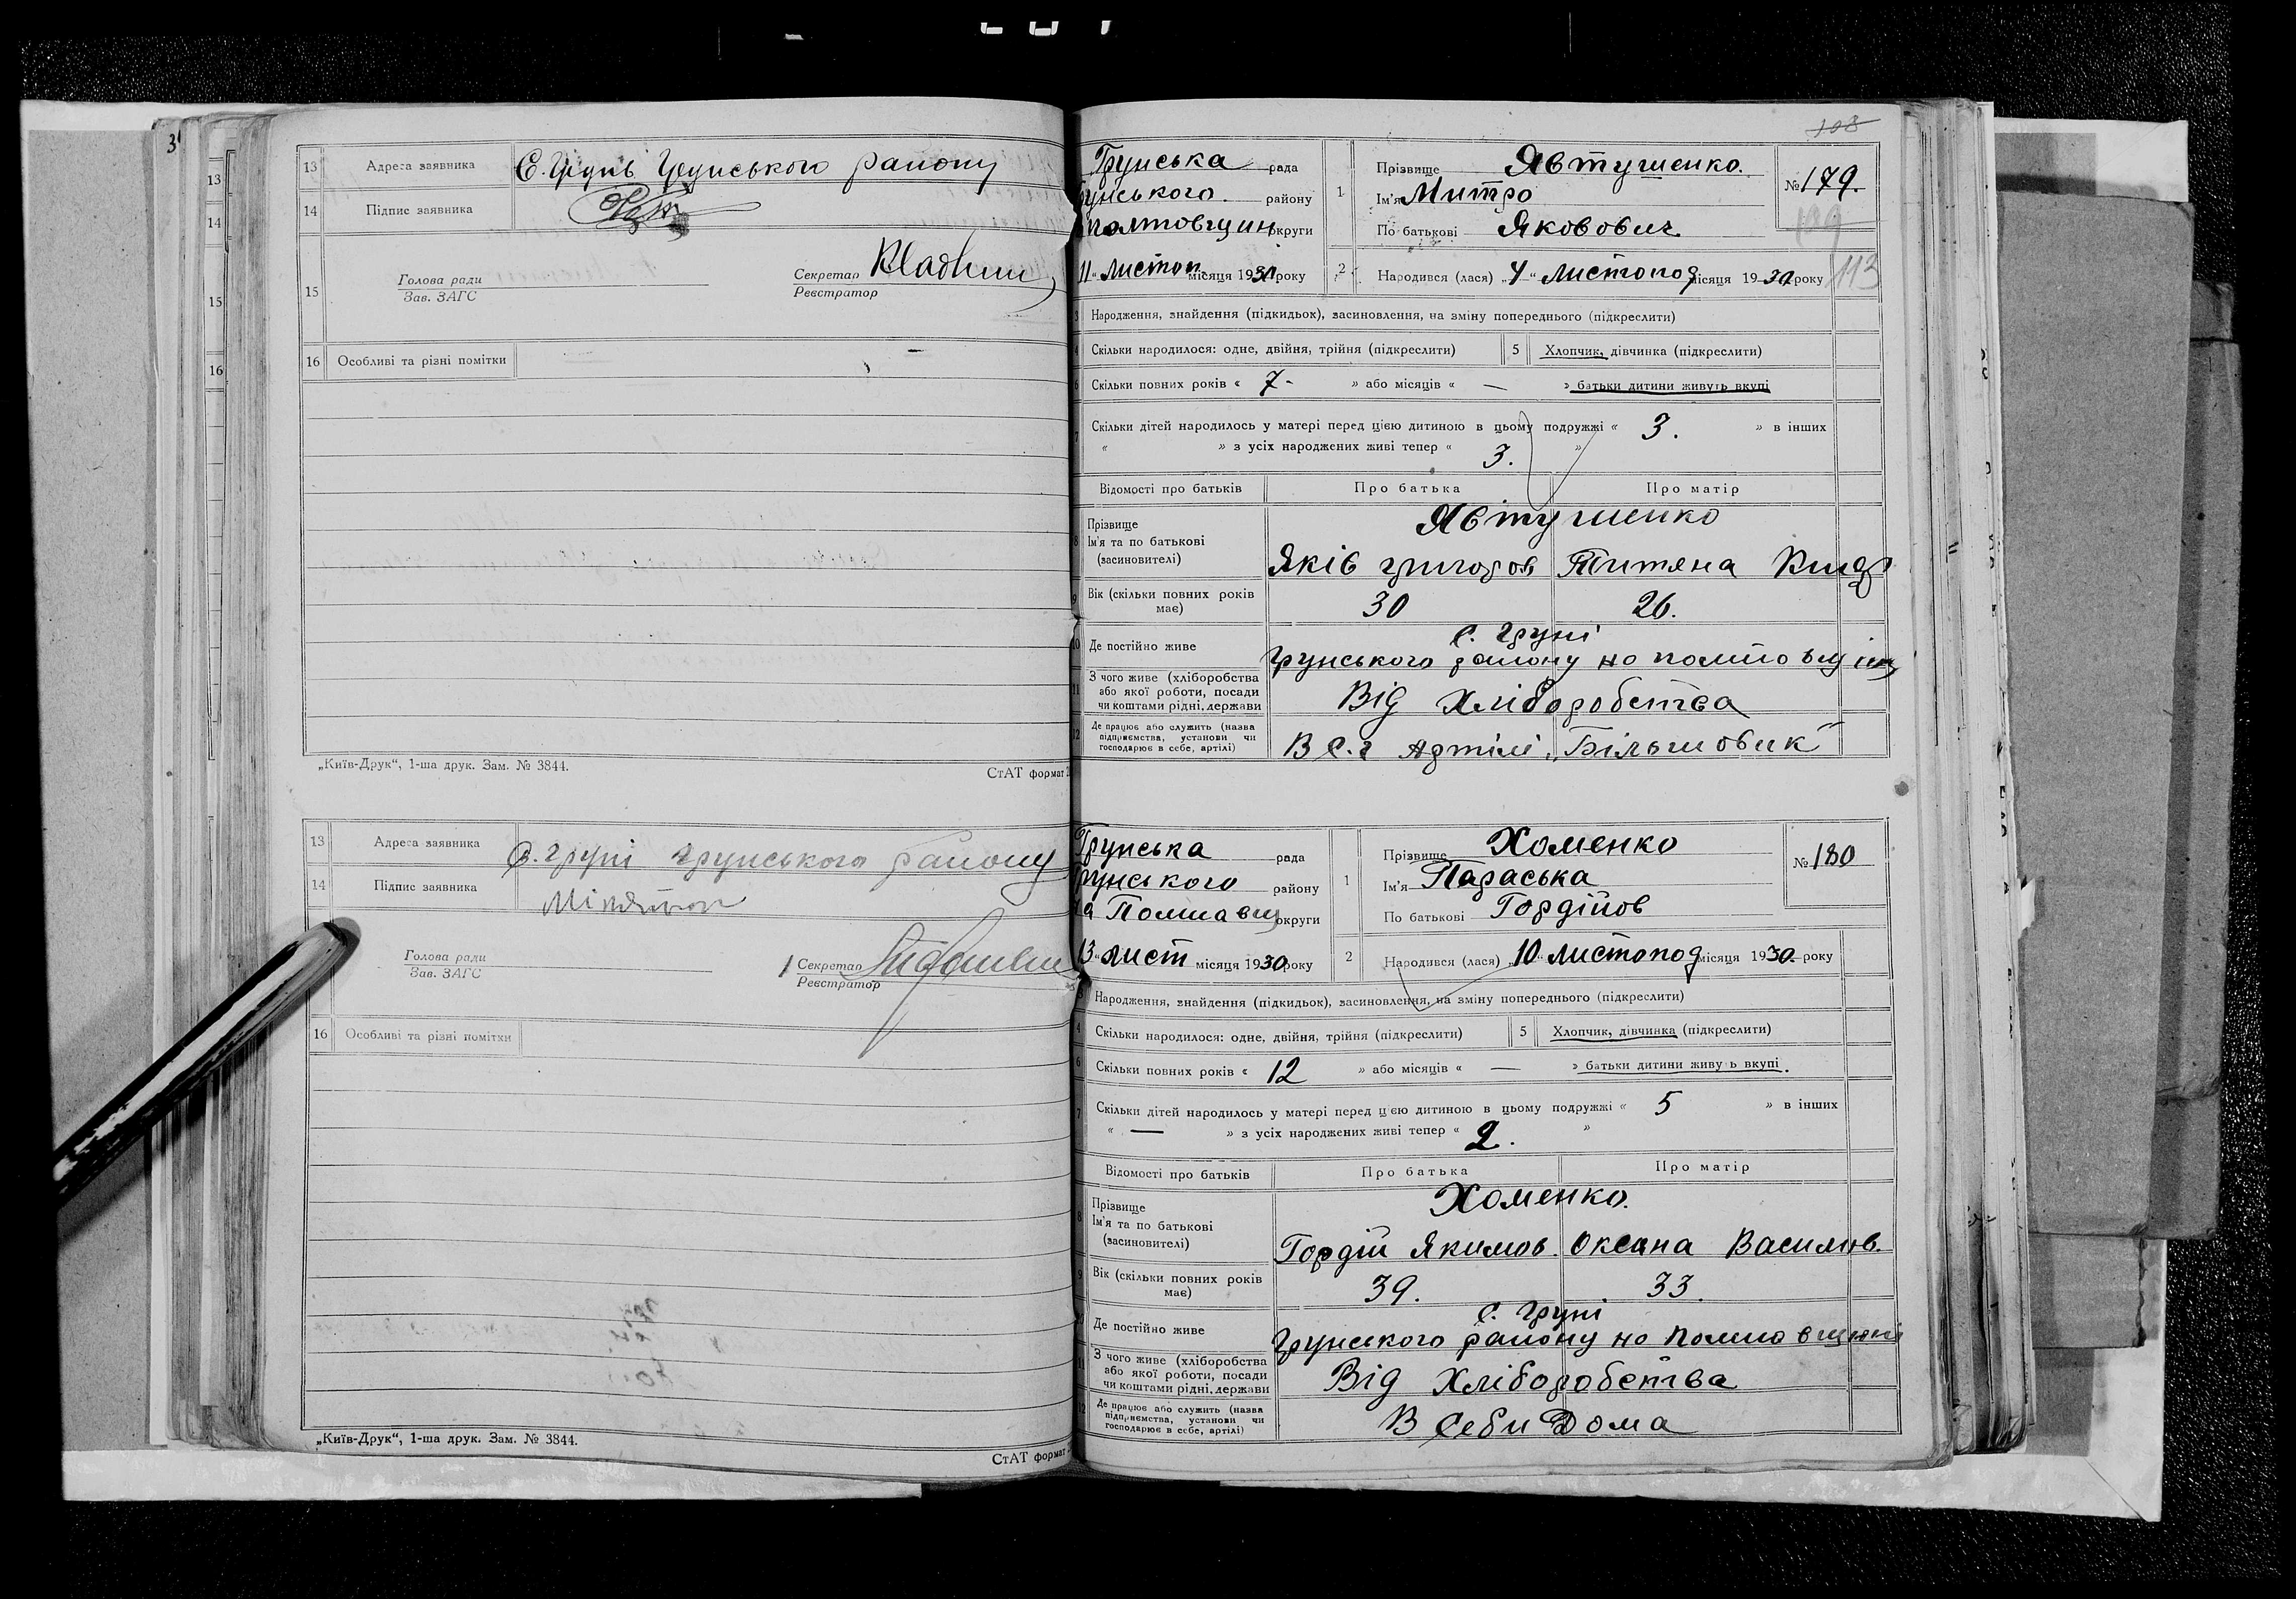 3
13
14
15
16
13 Адреса заявника С. Грунь Грунського району
14 Підпис заявника
15 Голова ради
Зав. ЗАГС
Секретар
Реєстратор
16 Особливі та різні помітки
„Київ-Друк“, 1-ша друк. Зам. № 3844.
СтАТ формат
13 Адреса заявника С. Груні Грунського району
14 Підпис заявника
Голова ради
Зав. ЗАГС
Секретар
Реєстратор
16 Особливі та різні помітки
„Київ-Друк“, 1-ша друк. Зам. № 3844.
СтАТ формат
108
Грунська рада
рунського району
полтовщин округи
11 “ Листоп місяця 1930 року
1 Прізвище Явтушенко.
Ім'я Митро
По батькові Якович
№ 179.
109
113
2 Народився (лася) „ 4 “ Листопод місяця 1930 року
3 Народження, знайдення (підкидьок), засиновлення, на зміну попереднього (підкреслити)
4 Скільки народилося: одне, двійня, трійня (підкреслити) 5 Хлопчик, дівчинка (підкреслити)
6 Скільки повних років « 7 - » або місяців « — » батьки дитини живуть вкупі
7 Скільки дітей народилось у матері перед цією дитиною в цьому подружжі « 3. » в інших
« » з усіх народжених живі тепер « 3. »
Відомості про батьків Про батька Про матір
8 Прізвище Явтушенко
Ім'я та по батькові
(засиновителі) Яків григоров Титяна
9 Вік (скільки повних років має) 30 26.
10 Де постійно живе С. Груні
Грунського району но
11 З чого живе (хліборобства
або якої роботи, посади
чи коштами рідні, держави Від Хліборобства
12 Де працює або служить (назва
підприємства, установи чи
господарює в себе, артілі) В С.г Артілі „Більшовик“
Грунська рада
рунського району
на Полтавщ округи
13 “ лист місяця 1930 року
1 Прізвище Хоменко
Ім'я Параська
По батькові Гордійов
№ 180
2 Народився (лася) „ 10 “ листопод місяця 1930 року
3 Народження, знайдення (підкидьок), засиновлення, на зміну попереднього (підкреслити)
4 Скільки народилося: одне, двійня, трійня (підкреслити) 5 Хлопчик, дівчинка (підкреслити)
6 Скільки повних років « 12 » або місяців « — » батьки дитини живуть вкупі.
7 Скільки дітей народилось у матері перед цією дитиною в цьому подружжі « 5 » в інших
« — » з усіх народжених живі тепер « 2. »
Відомості про батьків Про батька Про матір
8 Прізвище Хоменко.
Ім'я та по батькові
(засиновителі) Гордій Якимов. Оксана Василив.
9 Вік (скільки повних років має) 39. 33.
10 Де постійно живе С. Груні
Грунського району но Полтовщині
11 З чого живе (хліборобства
або якої роботи, посади
чи коштами рідні, держави Від Хліборобства
12 Де працює або служить (назва
підприємства, установи чи
господарює в себе, артілі) В Себи Дома